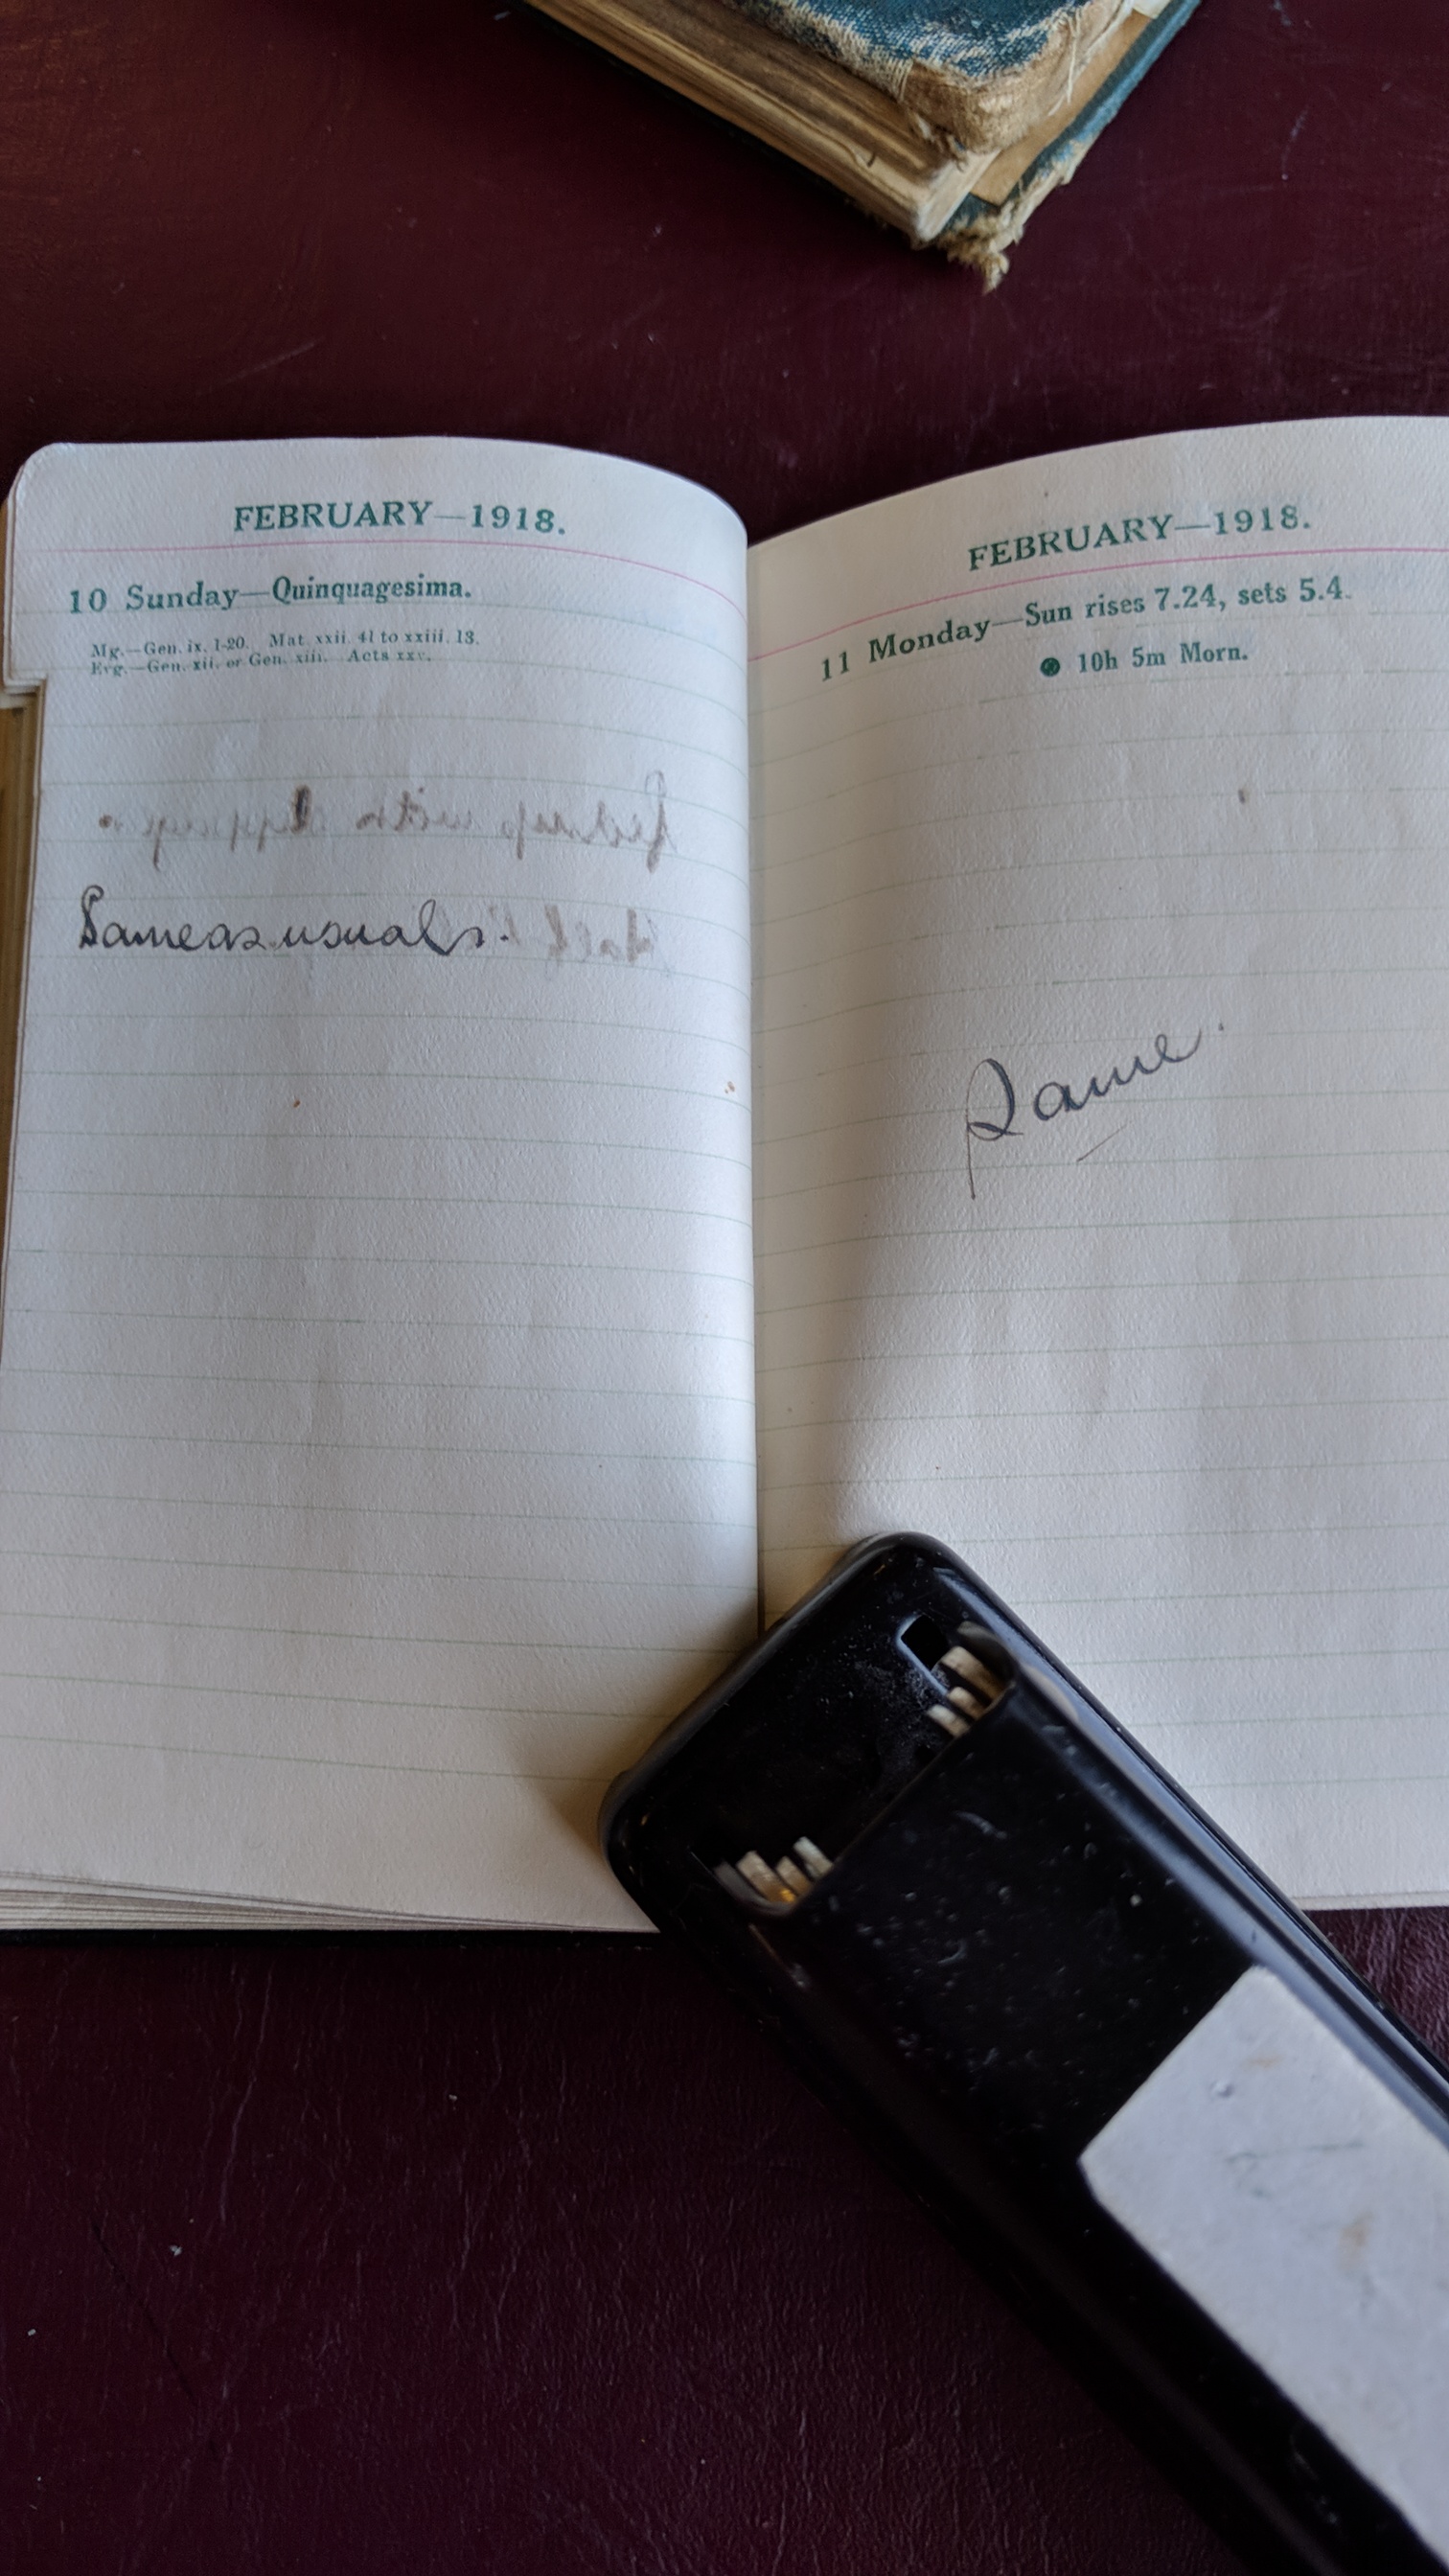 FEBRUARY—1918.
10 Sunday—Quinquagesima.
Mg.—Gen. ix. 1-20. Mat. xxii. 41 to xxiii. 13.
Evg.—Gen. xii. or Gen. xiii. Acts xxv.
Same as usual.
FEBRUARY—1918.
11 Monday—Sun rises 7.24, sets 5.4.
● 10h 5m Morn.
Same.